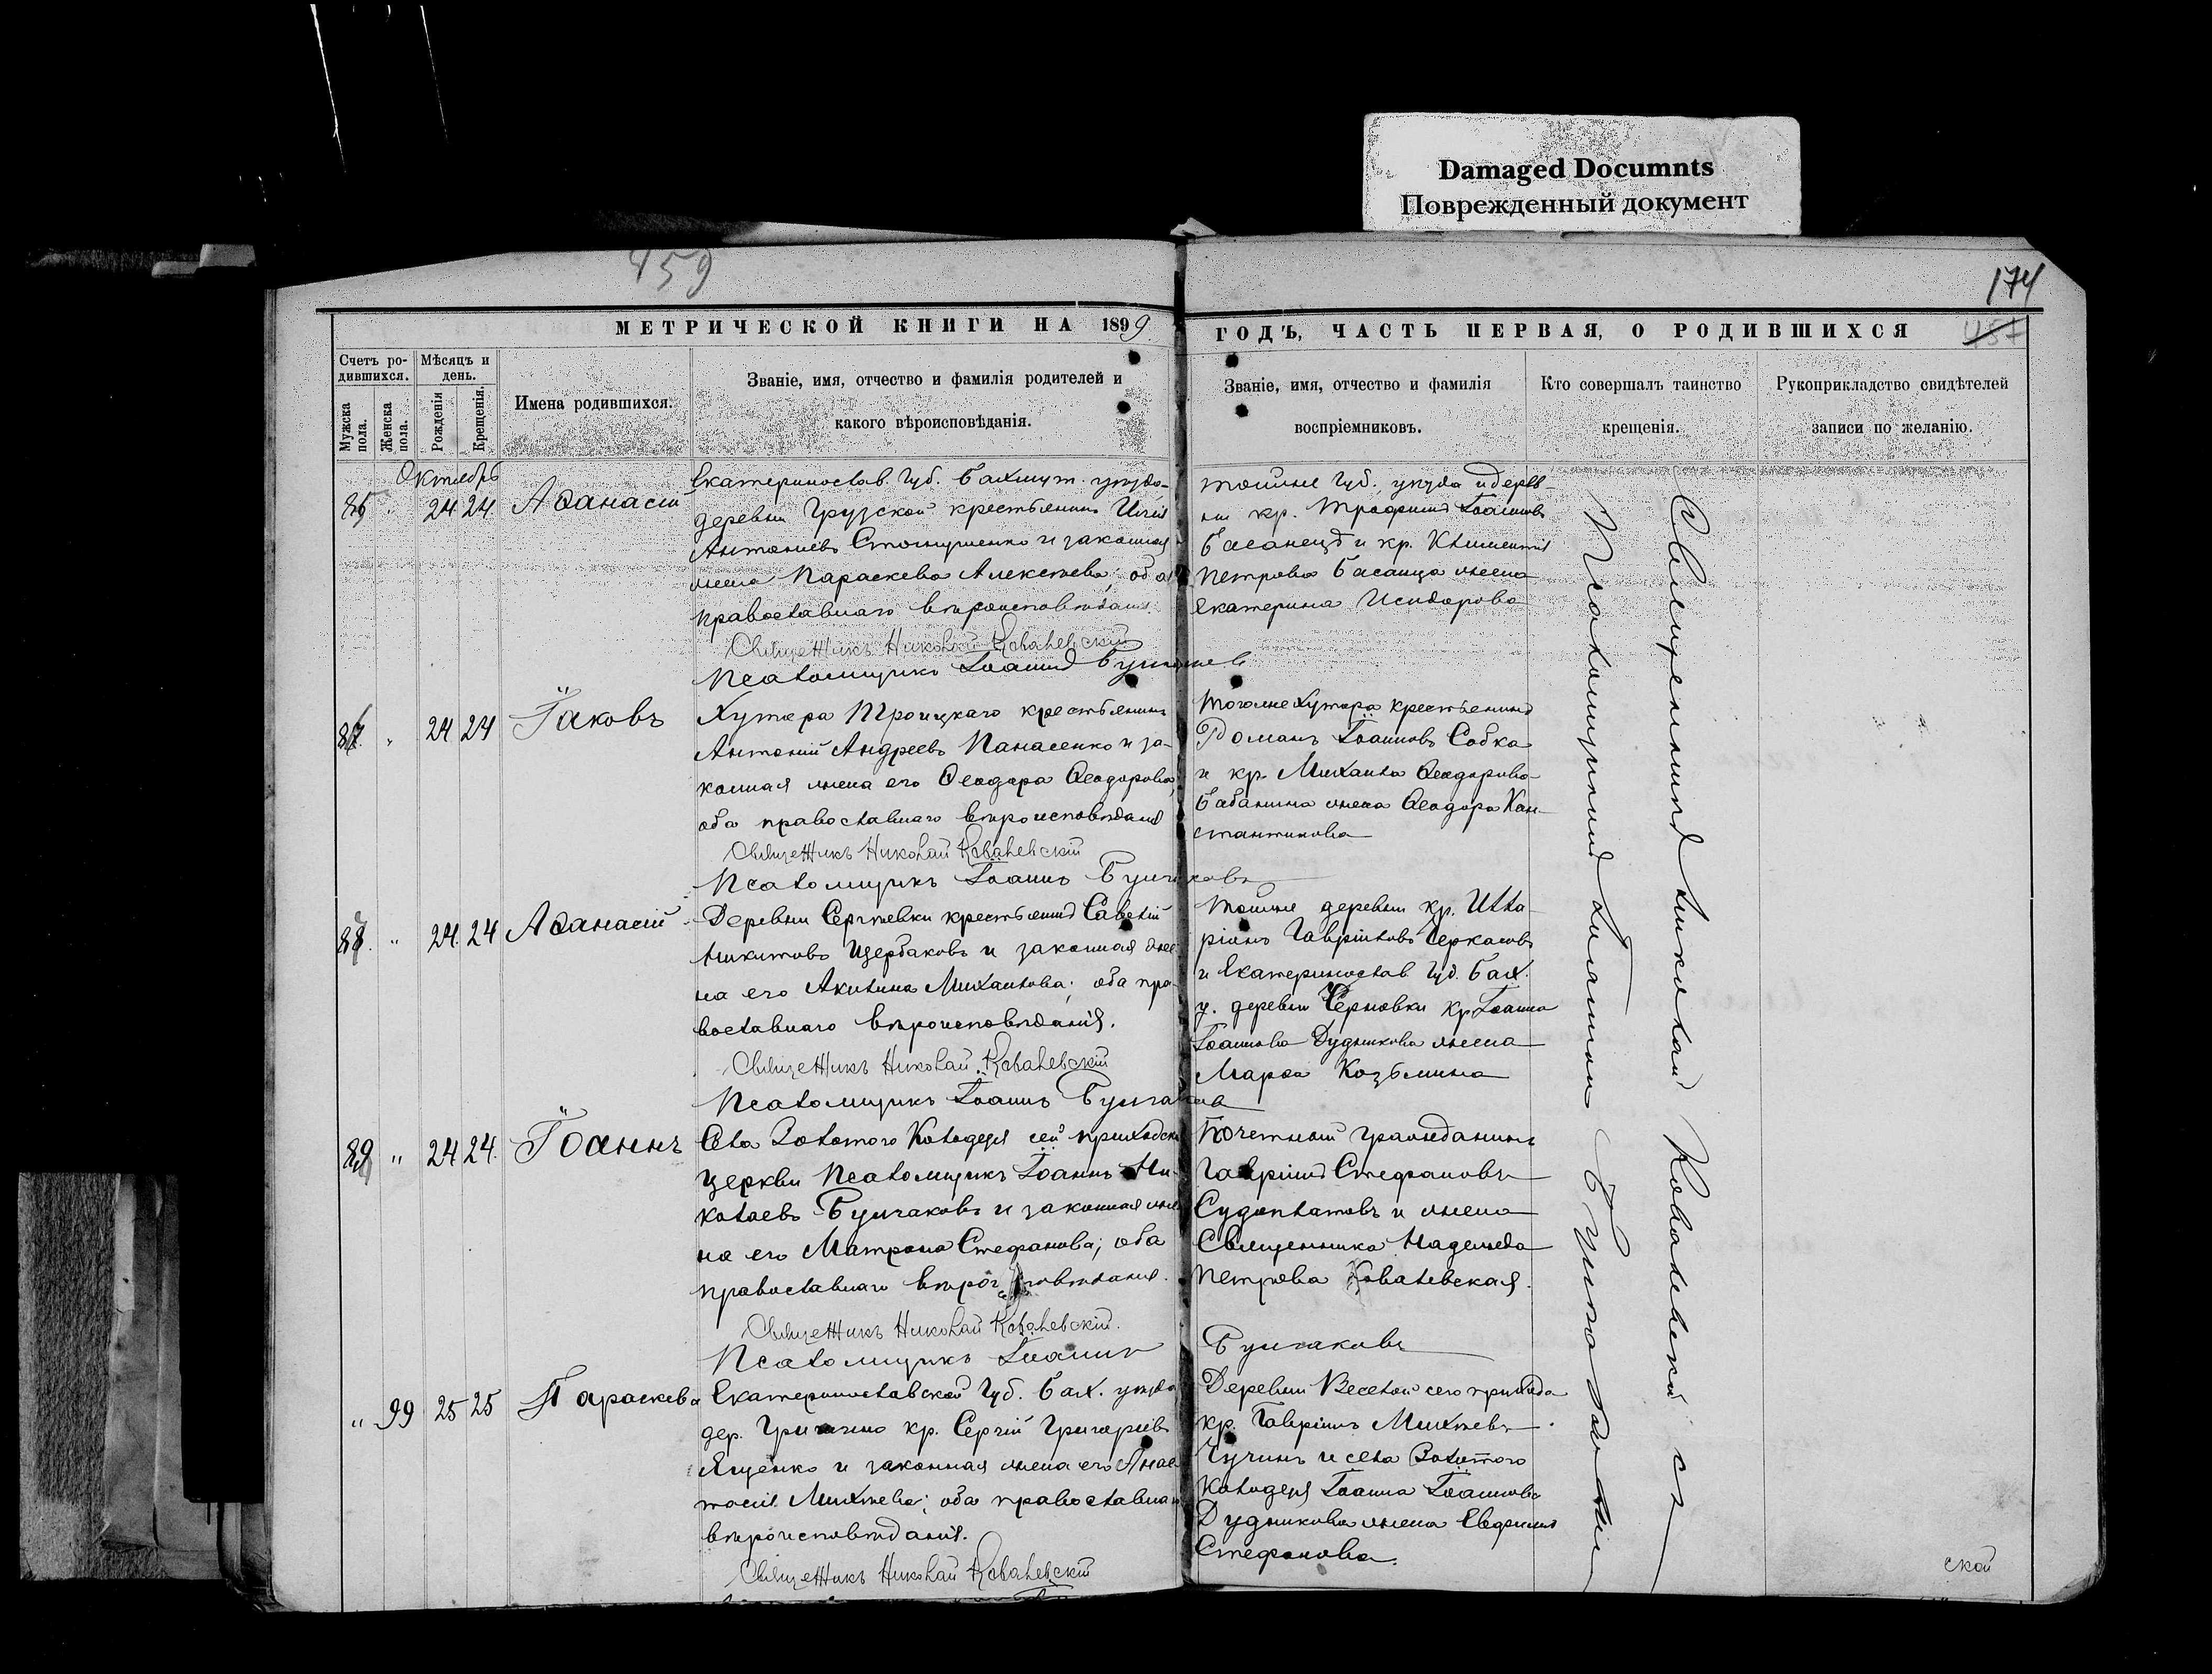 Damaged Documnts
Поврежденный документ
459
174
МЕТРИЧЕСКОЙ КНИГИ НА 1899
ГОДЪ, ЧАСТЬ ПЕРВАЯ, О РОДИВШИХСЯ
Счетъ ро-
дившихся.
Мужска
пола.
Женска
пола.
Мѣсяцъ и
день.
Рожденія
Крещенія.
Имена родившихся.
Званіе, имя, отчество и фамилія родителей и
какого вѣроисповѣданія.
Званіе, имя, отчество и фамилія
воспріемниковъ.
Кто совершалъ таинство
крещенія.
Рукоприкладство свидѣтелей
записи по желанію.
Октябрь
86 " 24 24 Аѳанасій
Екатеринослав. Губ. Бахмут. уѣзда
деревни Грузской крестьянинъ Илія
Антоніевъ и законная
жена Параскева Алексѣева; оба
православнаго вѣроисповѣданія.
Священникъ Николай Ковалевскій
Псаломщикъ Іоаннъ Булгаковъ
тойже Губ., уѣзда и дерев-
ни кр. Трофимъ Іоанновъ
Басанецъ и кр. Климентія
Петрова Басанца жена
Екатерина Исидорова
87 " 24 24 Іаковъ
Хутора Троицкаго крестьянинъ
Антоній Андреевъ Панасенко и за-
конная жена его Ѳеодора Ѳеодорова,
оба православнаго вѣроисповѣданія
Священникъ Николай Ковалевскій
Псаломщикъ Іоаннъ Булгаковъ
Тогоже хутора крестьянинъ
Романъ Іоанновъ Собка
и кр. Михаила Ѳеодорова
Бабанина жена Ѳеодора Кон-
стантинова
88 " 24 24 Аѳанасій
Деревни Сергѣевки крестьянинъ Савелій
Никитовъ Щербаковъ и законная же-
на его Акилина Михаилова; оба пра-
вославнаго вѣроисповѣданія.
Священникъ Николай Ковалевскій
Псаломщикъ Іоаннъ Булгаковъ
Тойже деревни кр. Илла-
ріонъ Гавріиловъ Черкасовъ
и Екатеринослав. Губ. Бах.
у. деревни Черновки кр Іоанна
Іоаннова Дудникова жена
Марѳа Козьмина
89 " 24 24 Іоаннъ
Села Золотого Колодезя сей приходской
церкви Псаломщикъ Іоаннъ Ни-
колаевъ Булгаковъ и законная же-
на его Матрона Стефанова; оба
православнаго вѣроисповѣданія.
Священникъ Николай Ковалевскій.
Псаломщикъ Іоаннъ Булгаковъ
Почетный гражданинъ
Гавріилъ Стефановъ
Судоплатовъ и жена
Священника Надежда
Петрова Ковалевская.
" 99 25 25 Параскева
Екатеринославской Губ. Бах. уѣзда
дер. Гришино кр. Сергій Григоріевъ
Ященко и законная жена его Анас-
тасія Михѣева; оба православнаго
вѣроисповѣданія.
Священникъ Николай Ковалевскій
Деревни Веселой сего прихода
кр. Гавріилъ Михѣевъ
Чучинъ и села Золотого
Колодезя Іоанна Іоаннова
Дудникова жена Евфимія
Стефанова.
Священникъ Николай Ковалевскій съ
Псаломщикомъ Іоанномъ Булгаковымъ
ской